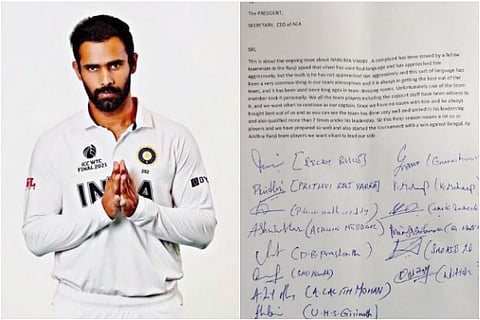 ICC WTC
FINAL 2021
INDIA
The PRESIDENT,
SECRETARY, CEO of ACA
SIR,
This is about the ongoing issue about HANUMA VIHARI. A complaint has been issued by a fellow
teammate in the Ranji squad that vihari has used foul language and has approached him
aggressively, but the truth is he has not approached him aggressively and this sort of language has
been a very common thing in our team atmosphere and it is always in getting the best out of the
team, and it has been used since long ages in team dressing rooms. Unfortunately one of the team
member took it personally. We all the team players including the support staff have been witness to
it, and we want vihari to continue as our captain. Since we have no issues with him and he always
bought best out of us and as you can see the team has done very well and united in his leadership
and also qualified more than 7 times under his leadership. Sir this Ranji season means a lot to us
players and we have prepared so well and also started the tournament with a win against Bengal. As
Andhra Ranji team players we want vihari to lead our side.
(RICKY BHUI)
(PRITHVI RAJ YARRA)
(ASHWIN HEBBAR)
(SHOAIB
(A. LALITH MOHAN)
(U.M.S. Girinath)